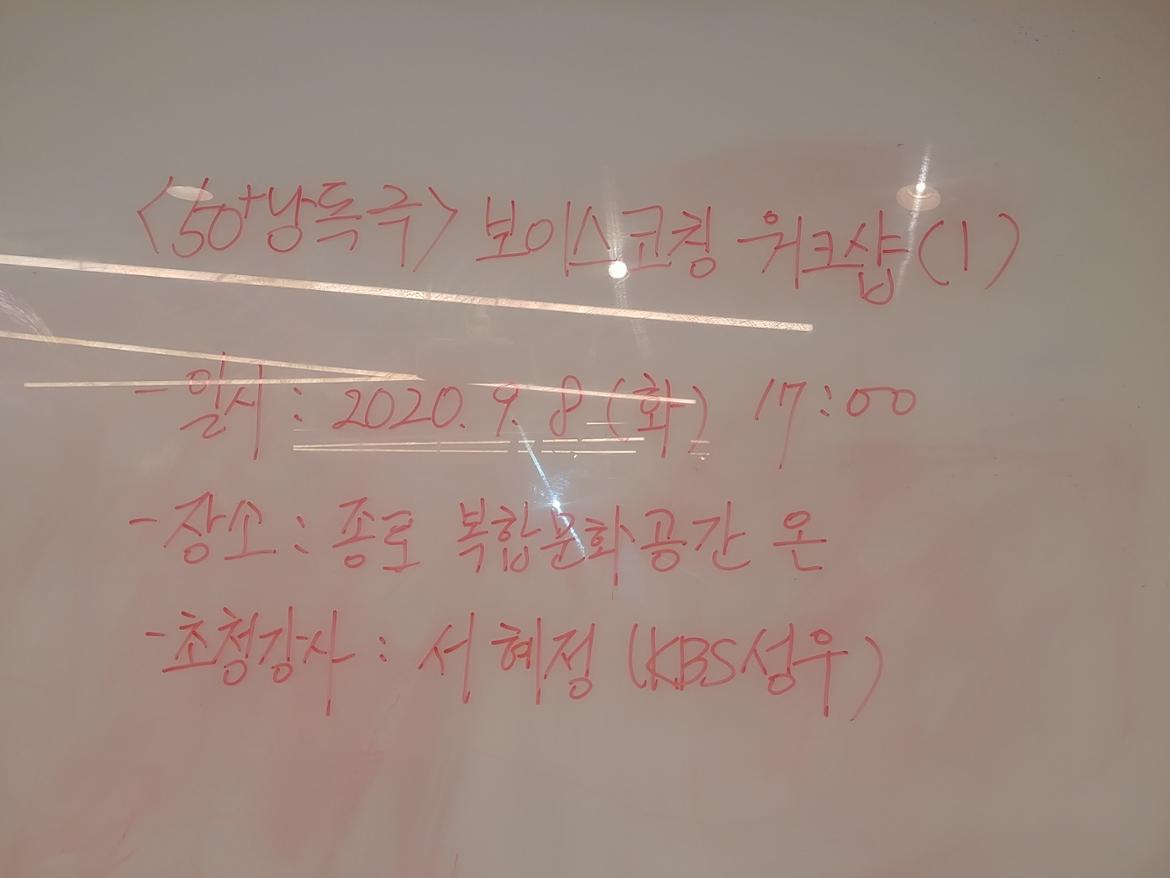 <50+낭독극> 보이스코칭 워크샵(1)
- 일시 : 2020. 9. 8 (화) 17:00
- 장소 : 종로 복합문화공간 온
- 초청강사 : 서혜정 (KBS성우)